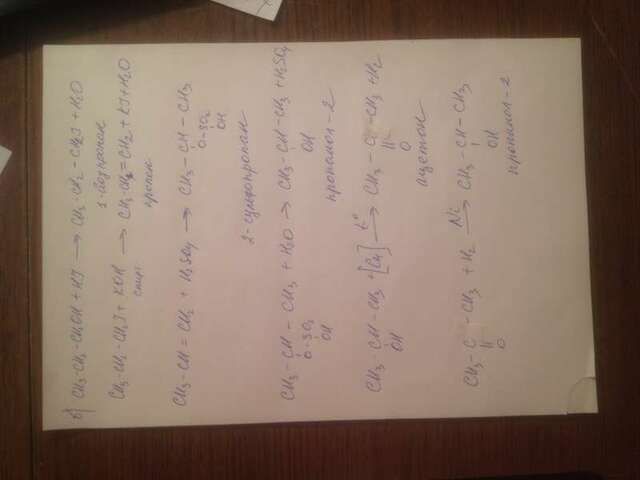 б) CH3-CH2-CH2OH + HJ → CH3-CH2-CH2J + H2O
1-йодпропан
CH3-CH2-CH2J + KOH → CH3-CH=CH2 + KJ + H2O
спирт
пропен
CH3-CH=CH2 + H2SO4 → CH3-CH-CH3
O-SO2
OH
2-сульфопропан
CH3-CH-CH3 + H2O → CH3-CH-CH3 + H2SO4
O-SO2
OH OH
пропанол-2
CH3-CH-CH3 + [Cu] t° → CH3-C-CH3 + H2
OH || O
ацетон
CH3-C-CH3 + H2 Ni → CH3-CH-CH3
|| O OH
пропанол-2